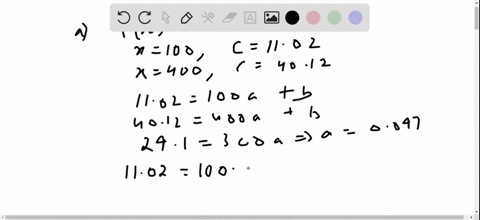 a)
x = 100, C = 11.02
x = 400, C = 40.12
11.02 = 100a + b
40.12 = 400a + b
29.1 = 300a => a = 0.097
11.02 = 100.